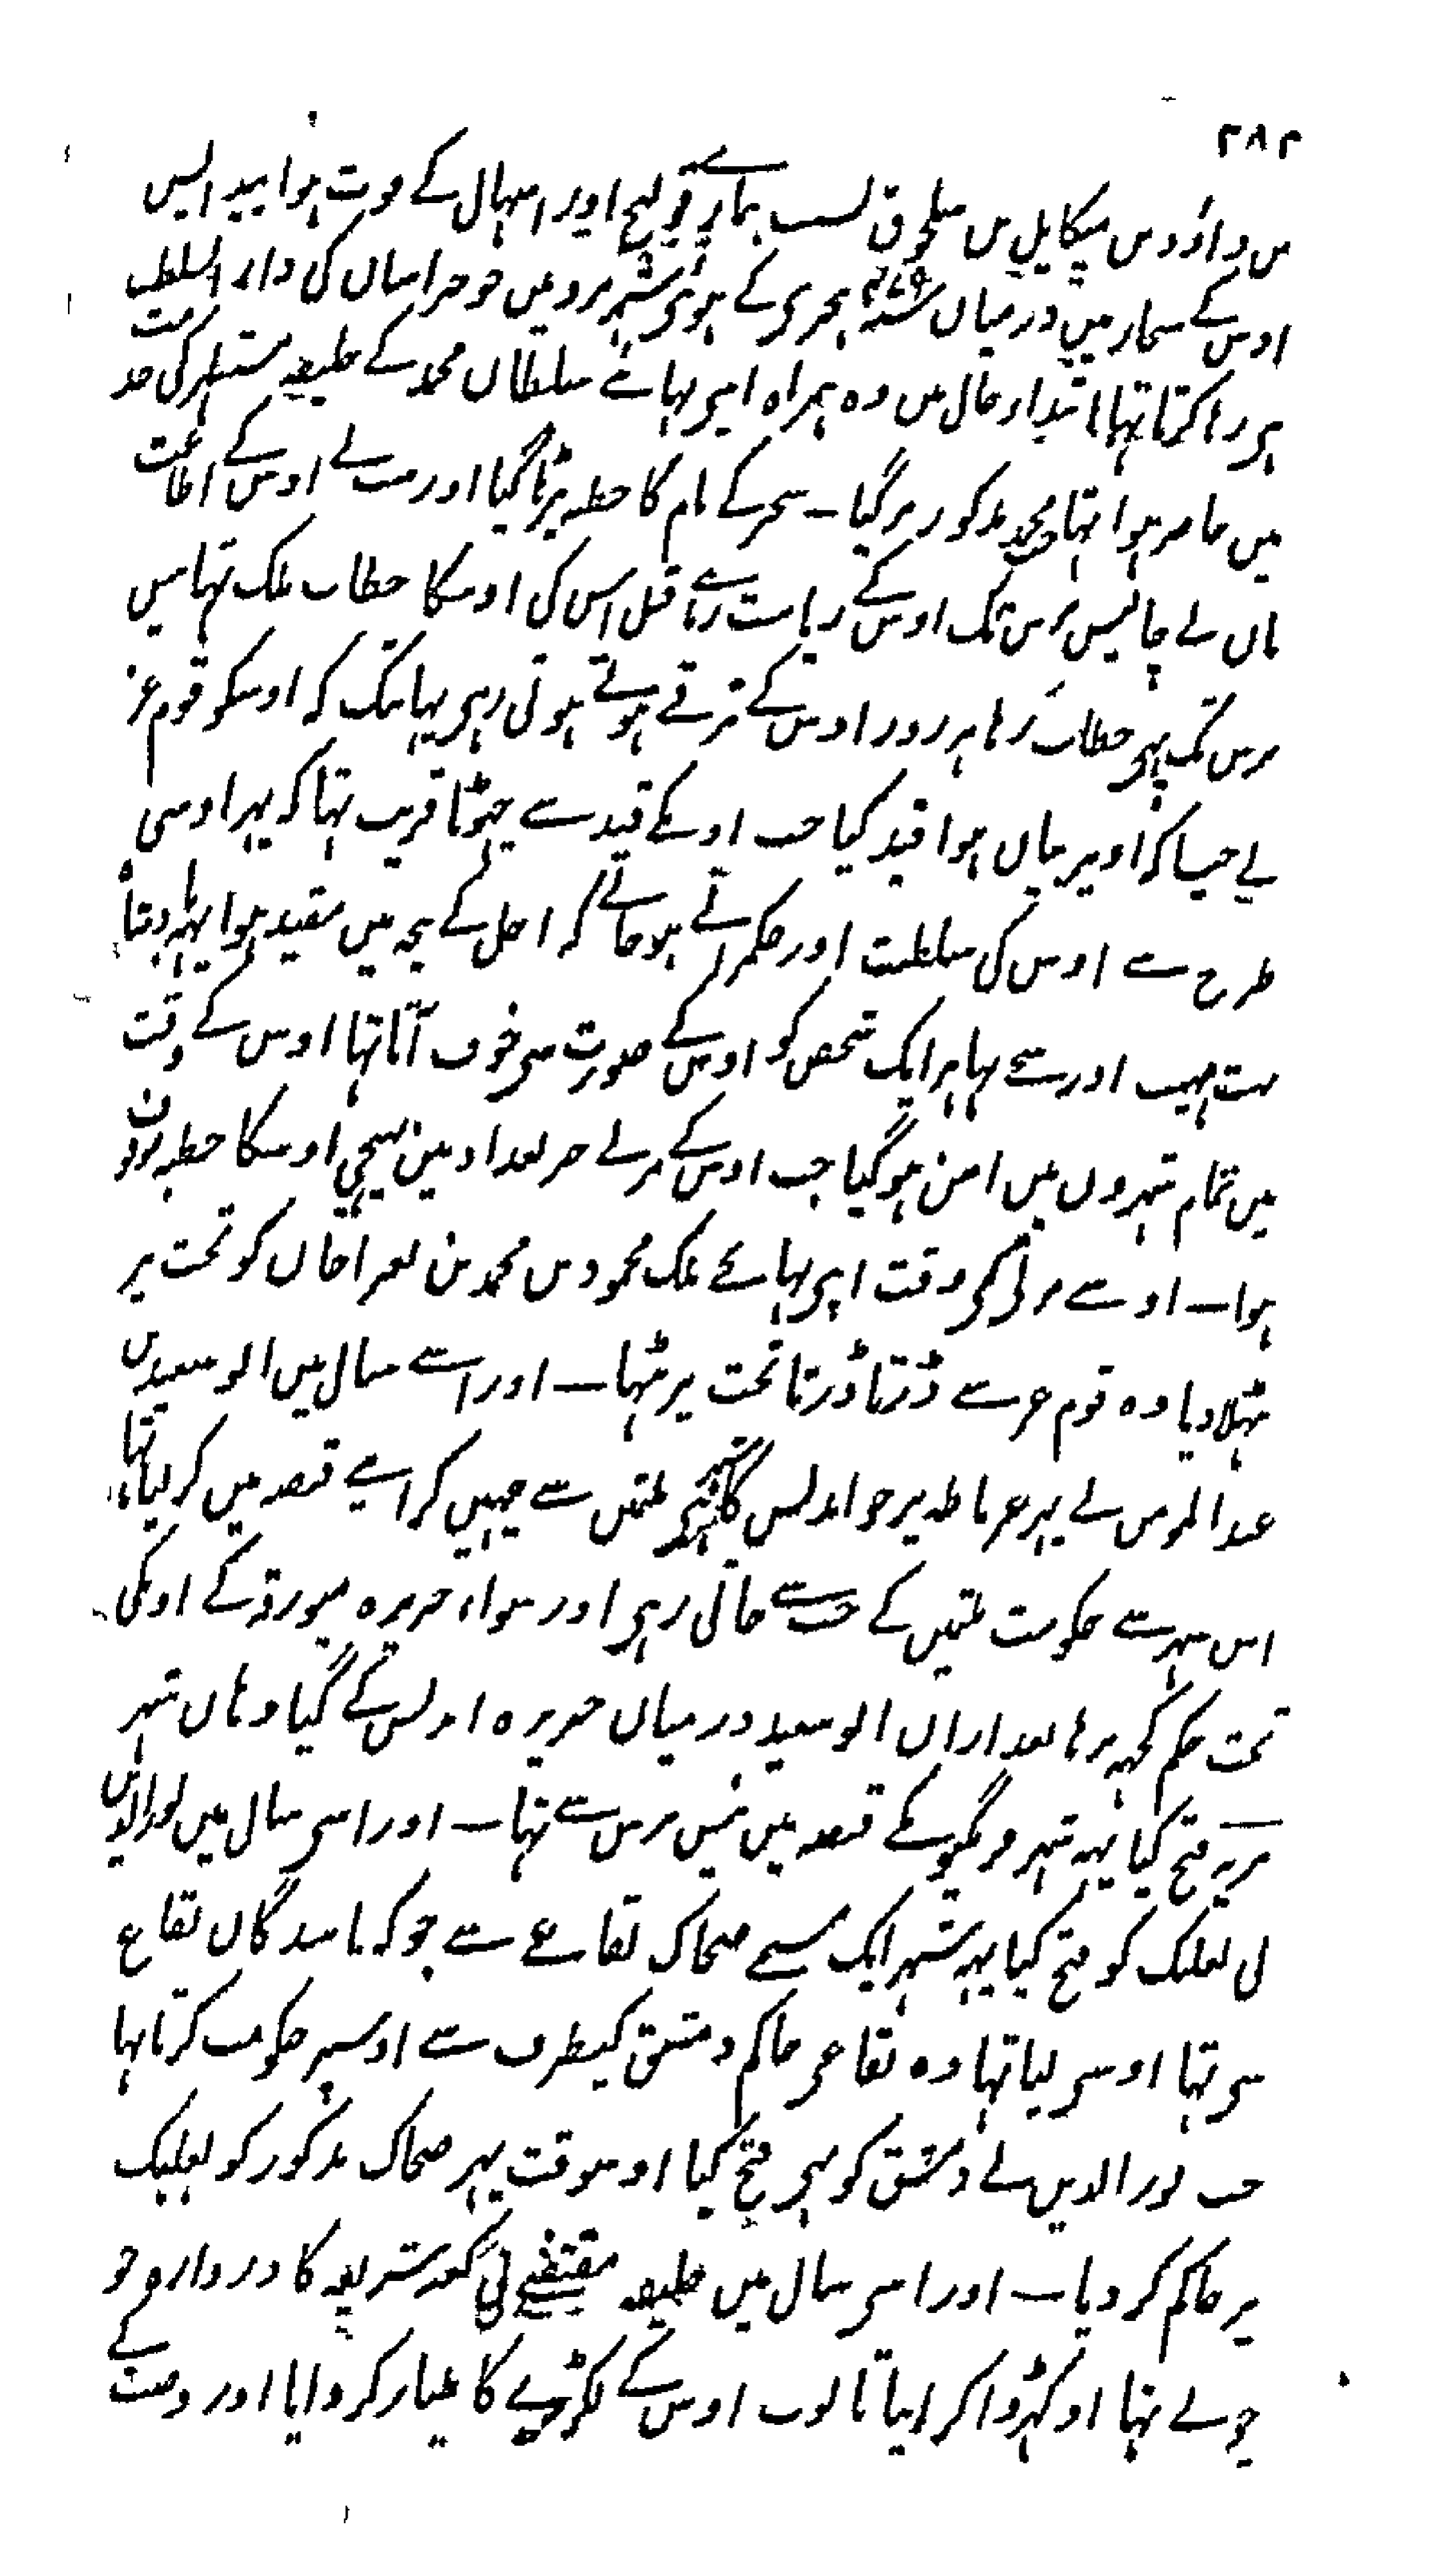 ۲۸۲
بن داؤد بن میکایل بن سلجوق بسبب بمارے قولنج اور اسہال کے فوت ہوا پیدایش
اوس کے سنجار میں درمیان ۴۷۹ ہجری کے ہوئی شہر مرو میں جو خراسان کی دار السلطنت
ہی رہا کرتا تہا ابتداء حال میں وہ ہمراہ اپنی بہائے سلطان محمد کے خلیفہ مستظہر کی خدمت
میں حاضر ہوا تہا جب محمد مذکور مر گیا۔ سنجر کے نام کا خطبہ پڑہا گیا اور سب نے اوس کے اطاعت
مان لے چالیس برس تک اوس کے ریاست رہے قبل اس کی اوسکا خطاب ملک تہا بیس
برس تک یہی خطاب رہا ہر روز اوس کے ترقے ہوتے ہوتی رہی یہانتک کہ اوسکو قوم غز
نے جیسا کہ اوپر بیان ہوا قید کیا جب اوسکے قید سے چہوٹا قریب تہا کہ پہر اوسی
طرح سے اوس کی سلطنت اور حکمرانے ہو جائے کہ اجل کے پنجہ میں مقید ہوا یہہ بادشاہ
بہت مہیب اور سخے تہا ہر ایک شخص کو اوس کے صورت سی خوف آتا تہا اوس کے وقت
میں تمام شہروں میں امن ہو گیا جب اوس کے مرنے خبر بغداد مین پہنچی اوسکا خطبہ موقوف
ہوا۔ اوسے مرنی کی وقت اپنی بہانجے ملک محمود بن محمد بن بغراخان کو تخت پر
بٹہلا دیا وہ قوم غز سے ڈرتا ڈرتا تخت پر بیٹہا۔ اور اسے سال میں ابو سعید بن
عبدالمومن نے شہر غرناطہ پر جو اندلس کا شہر ہی ملثمین سے چہین کر اپنے قبضہ میں کر لیا تہا
اس شہر سے حکومت ملثمین کے جب سے جاتی رہی اور سواء جزیرہ میورقہ کے اونکی
تحت حکم کچہ نرہا بعد ازاں ابو سعید درمیان جزیرہ اندلس کے گیا وہاں شہر
مریہ فتح کیا یہہ شہر فرنگیو نکے قبضہ میں دس برس سے تہا۔ اور اسی سال میں نور الدین
نی بعلبک کو فتح کیا یہہ شہر ایک مسمے ضحاک بقاعے سے جو کہ باشندگان بقاع
سی تہا اوسی لیا تہا وہ بقاعی حاکم دمشق کیطرف سے اوسپر حکومت کرتا تہا
جب نور الدین نے دمشق کو بہی فتح کیا اوسوقت پہر ضحاک مذکور کو بعلبک
پر حاکم کر دیا۔ اور اسی سال میں خلیفہ مقتفے نی کعبہ شریفہ کا دروازہ جو
چوبے تہا اوکہڑوا کر اپنا تابوت اوس کے لکڑیے کا طیار کروایا اور وصیت کے